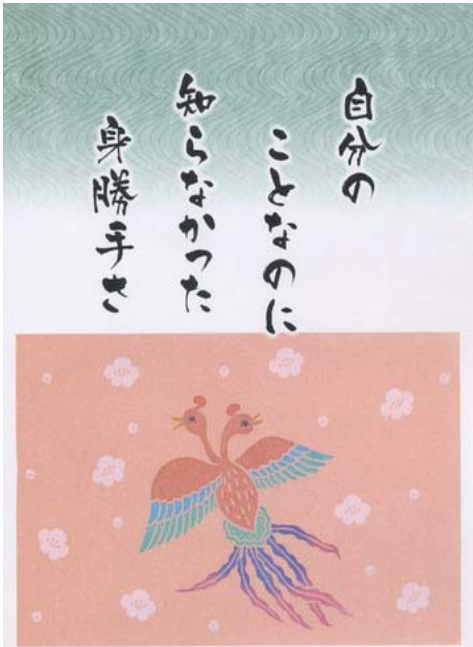 自分の
ことなのに
知らなかった
身勝手さ